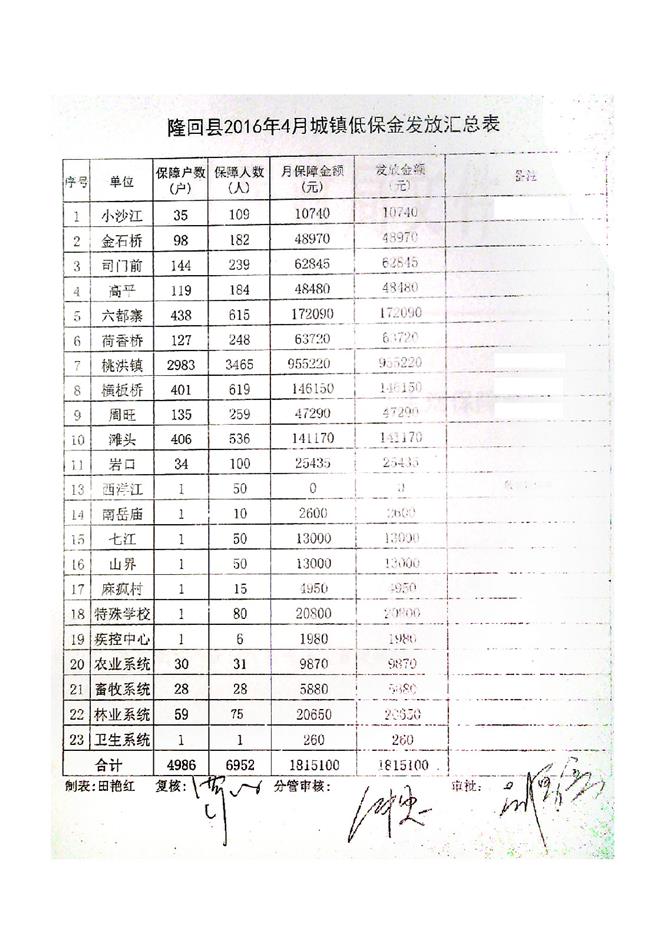 隆回县2016年4月城镇低保金发放汇总表
序号 单位 保障户数(户) 保障人数(人) 月保障金额(元) 发放金额(元) 备注
1 小沙江 35 109 10740 10740
2 金石桥 98 182 48970 48970
3 司门前 144 239 62845 62845
4 高平 119 184 48480 48480
5 六都寨 438 615 172090 172090
6 荷香桥 127 248 63720 63720
7 桃洪镇 2983 3465 955220 955220
8 横板桥 401 619 146150 146150
9 周旺 135 259 47290 47290
10 滩头 406 536 141170 141170
11 岩口 34 100 25435 25435
13 西洋江 1 50 0 0
14 南岳庙 1 10 2600 2600
15 七江 1 50 13000 13000
16 山界 1 50 13000 13000
17 麻疯村 1 15 4950 4950
18 特殊学校 1 80 20800 20800
19 疾控中心 1 6 1980 1980
20 农业系统 30 31 9870 9870
21 畜牧系统 28 28 5880 5880
22 林业系统 59 75 20650 20650
23 卫生系统 1 1 260 260
合计 4986 6952 1815100 1815100
制表:田艳红 复核: 分管审核: 审批: